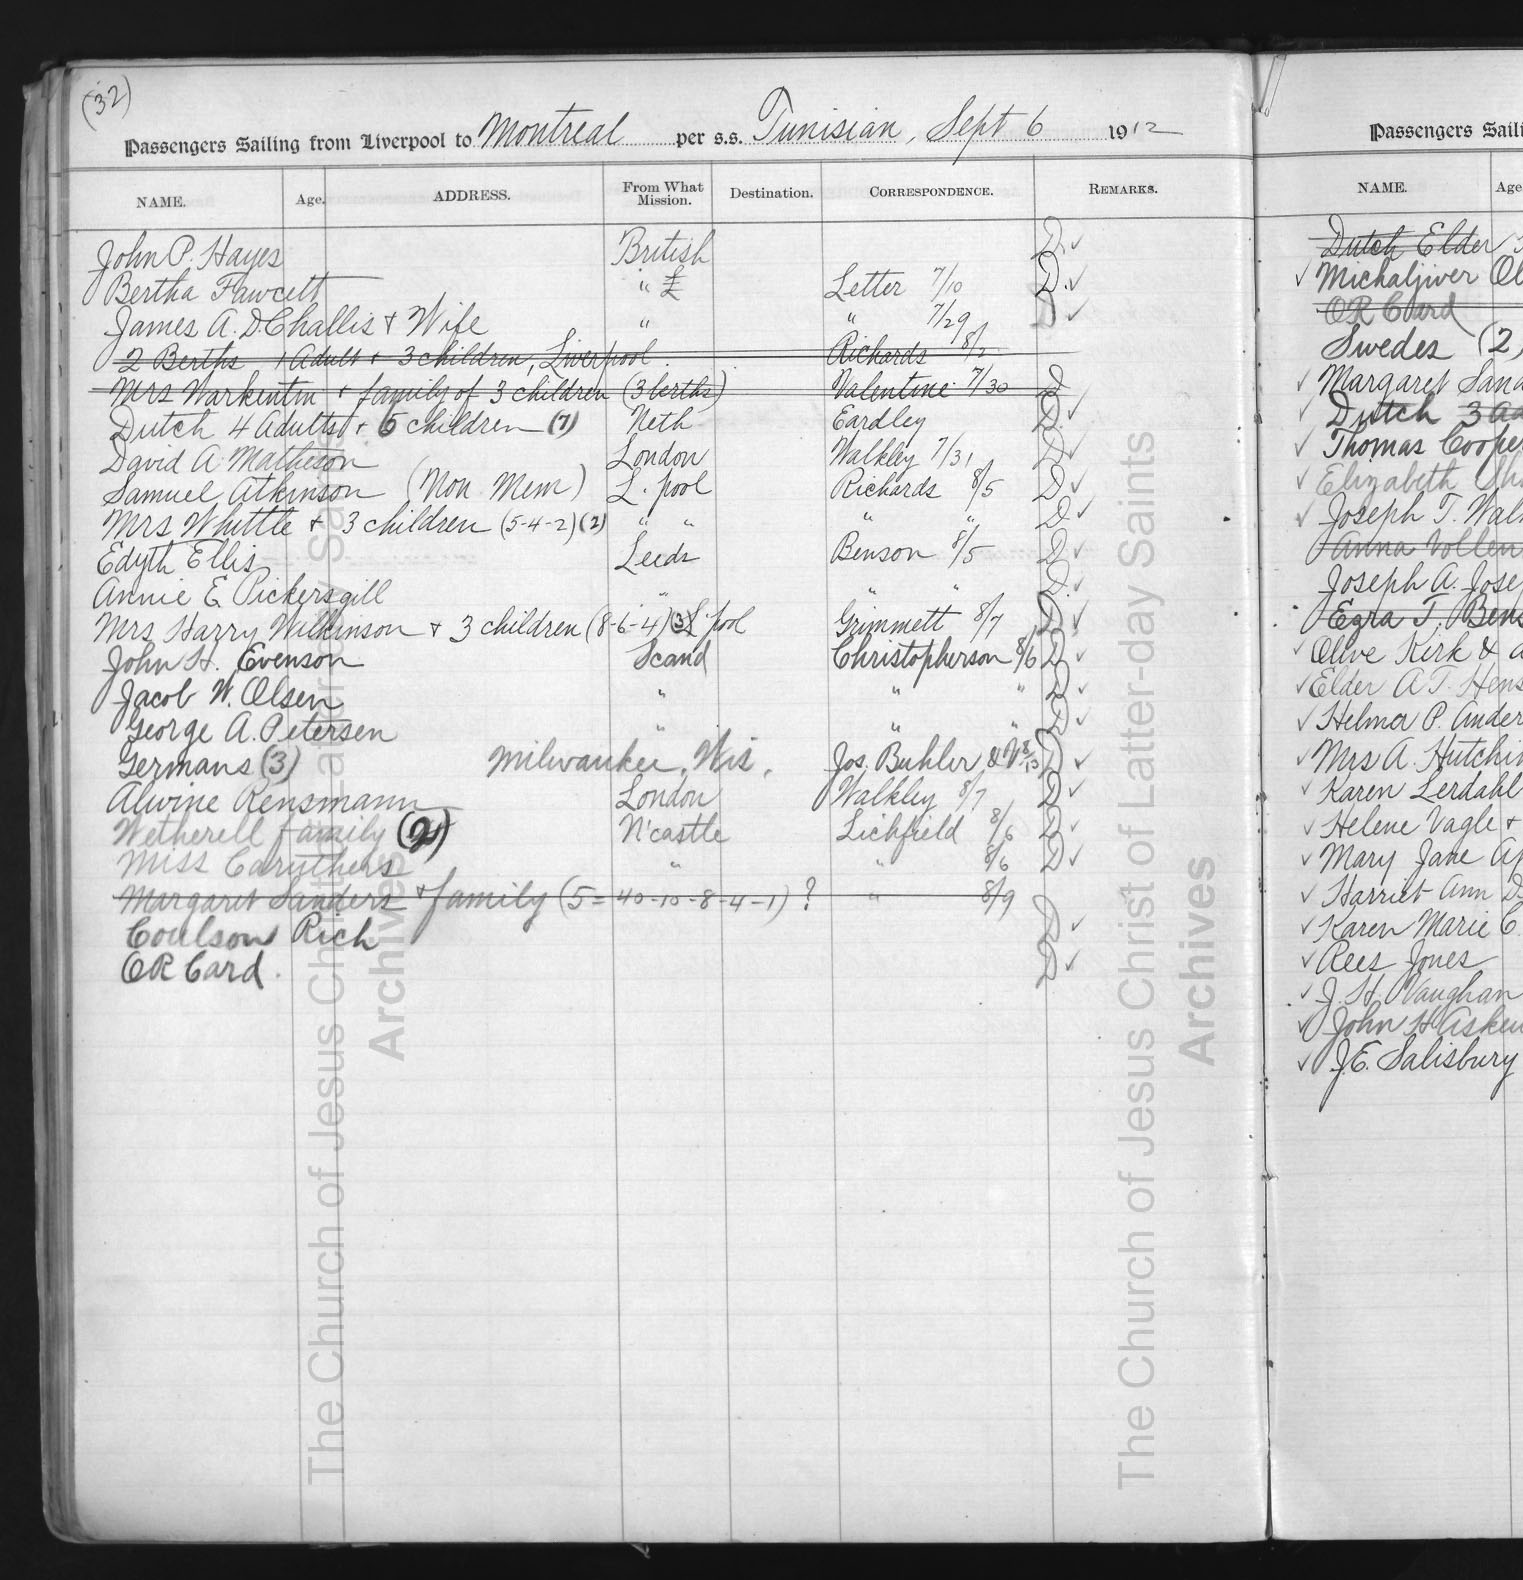 (32)
Passengers Sailing from Liverpool to Montreal per s.s. Tunisian, Sept 6 1912
NAME. Age. ADDRESS. From What Mission. Destination. CORRESPONDENCE. REMARKS.
John P. Hayes British D. ✓
Bertha Fawcett " £ Letter 7/10 D. ✓
James A. D. Challis + Wife " " 7/29 ✓
2 Berths 1 Adult + 3 children, Liverpool Richards 8/2
Mrs Warkentin + family of 3 children (3 berths) Valentine 7/30
Dutch 4 Adults + 5 children (7) Neth Eardley D. ✓
David A Matheson London Walkley 7/31 D ✓
Samuel Atkinson (Non Mem) L.pool Richards 8/5 D ✓
Mrs Whittle + 3 children (5-4-2) (2) " " " " D. ✓
Edyth Ellis Leeds Benson 8/5 D ✓
Annie E. Pickersgill " " " D ✓
Mrs Harry Wilkinson + 3 children (8-6-4) (3) L'pool Grimmett 8/7 D ✓
John H. Evenson Scand Christopherson 8/6 D ✓
Jacob W. Olsen " " " D ✓
George A. Petersen " " " D ✓
Germans (3) Milwaukee, Wis. Jos. Buhler 8/13 D ✓
Alwine Rensmann London Walkley 8/7 D ✓
Wetherell family (2) N'castle Lichfield 8/6 D ✓
Miss Caruthers " " 8/6 D ✓
Margaret Sanders + family (5 = 40-10-8-4-1) ? " 8/9
Coulson Rich D ✓
OR Card. D ✓
Passengers Saili
NAME. Age
Dutch Elder
✓ Michaljiver Ol
OR Card
Swedes (2)
✓ Margaret Sand
✓ Dutch 3 Ad
✓ Thomas Coope
✓ Elizabeth
✓ Joseph T. Walk
Anna Vollen
Joseph A. Jose
Ezra T. Bens
✓ Olive Kirk & a
✓ Elder A T. Hens
✓ Helma P. Ander
✓ Mrs A. Hutchin
✓ Karen Lerdahl
✓ Helene Vagle +
✓ Mary Jane Ap
✓ Harriet Ann D
✓ Karen Marie C.
✓ Rees Jones
✓ J. H. Vaughan
✓ John H Askew
✓ J.E. Salisbury
The Church of Jesus Christ of Latter-day Saints
Archives
The Church of Jesus Christ of Latter-day Saints
Archives